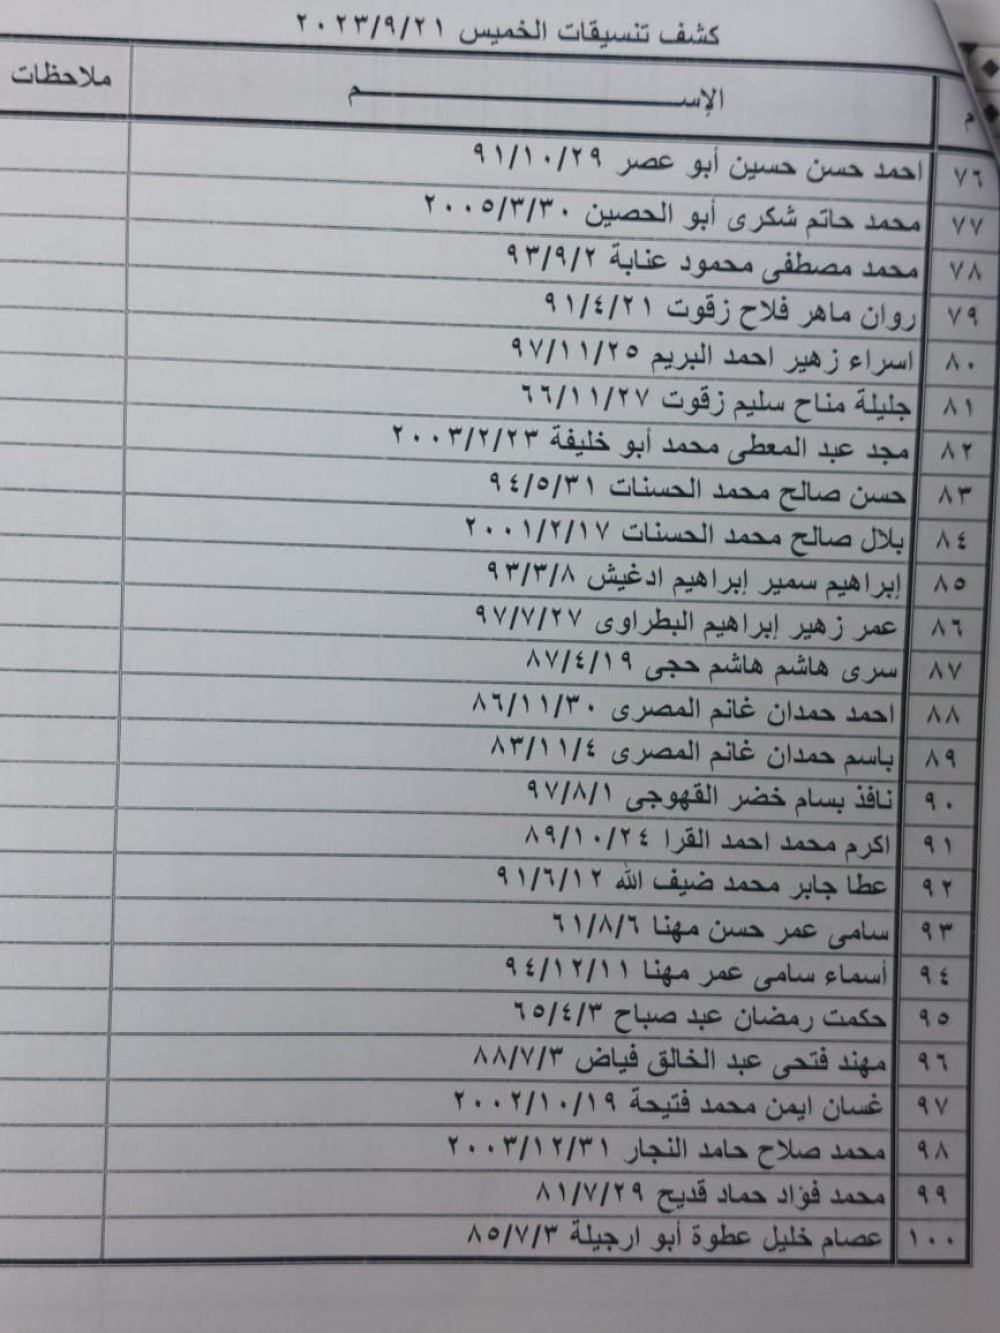 كشف تنسيقات الخميس ٢٠٢٣/٩/٢١
م الإســــــم ملاحظات
٧٦ احمد حسن حسين أبو عصر ٩١/١٠/٢٩
٧٧ محمد حاتم شكرى أبو الحصين ٢٠٠٥/٣/٣٠
٧٨ محمد مصطفى محمود عنابة ٩٣/٩/٢
٧٩ روان ماهر فلاح زقوت ٩١/٤/٢١
٨٠ اسراء زهير احمد البريم ٩٧/١١/٢٥
٨١ جليلة مناح سليم زقوت ٦٦/١١/٢٧
٨٢ مجد عبد المعطى محمد أبو خليفة ٢٠٠٣/٢/٢٣
٨٣ حسن صالح محمد الحسنات ٩٤/٥/٣١
٨٤ بلال صالح محمد الحسنات ٢٠٠١/٢/١٧
٨٥ إبراهيم سمير إبراهيم ادغيش ٩٣/٣/٨
٨٦ عمر زهير إبراهيم البطراوى ٩٧/٧/٢٧
٨٧ سرى هاشم هاشم حجى ٨٧/٤/١٩
٨٨ احمد حمدان غانم المصرى ٨٦/١١/٣٠
٨٩ باسم حمدان غانم المصرى ٨٣/١١/٤
٩٠ نافذ بسام خضر القهوجى ٩٧/٨/١
٩١ اكرم محمد احمد القرا ٨٩/١٠/٢٤
٩٢ عطا جابر محمد ضيف الله ٩١/٦/١٢
٩٣ سامى عمر حسن مهنا ٦١/٨/٦
٩٤ أسماء سامى عمر مهنا ٩٤/١٢/١١
٩٥ حكمت رمضان عبد صباح ٦٥/٤/٣
٩٦ مهند فتحى عبد الخالق فياض ٨٨/٧/٣
٩٧ غسان ايمن محمد فتيحة ٢٠٠٢/١٠/١٩
٩٨ محمد صلاح حامد النجار ٢٠٠٣/١٢/٣١
٩٩ محمد فؤاد حماد قديح ٨١/٧/٢٩
١٠٠ عصام خليل عطوة أبو ارجيلة ٨٥/٧/٣